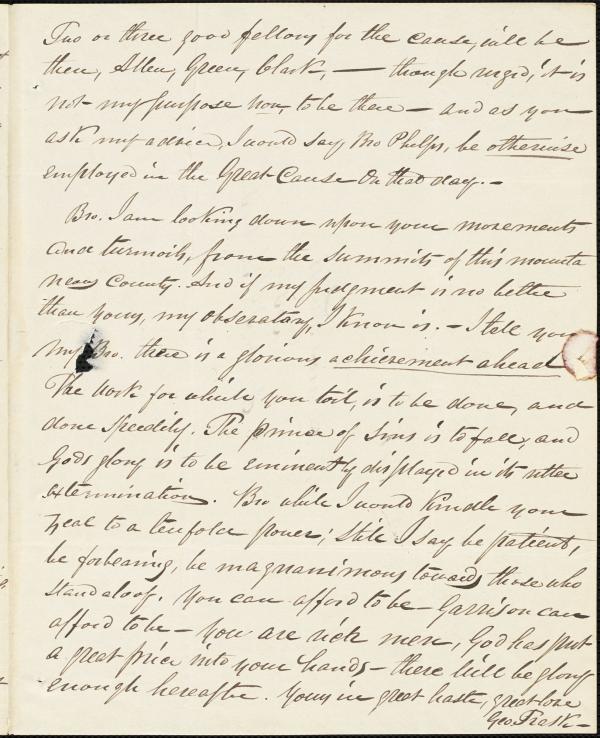 Two or three good fellows for the cause, will be
there, Allen, Green, Clark, — though urged, it is
not my purpose now, to be there — and as you
ask my advice, I would say, Bro Phelps, be otherwise
employed in the Great Cause On that day. —
Bro. I am looking down upon your movements
and turmoils, from the summits of this mounta
neous County. And if my judgment is no better
than yours, my observatory, I know is. — I tell you
my Bro. there is a glorious achievement ahead
The work for which you toil, is to be done, and
done speedily. The prince of Sins is to fall, and
Gods glory is to be eminently displayed in its utter
extermination. Bro while I would kindle your
zeal to a tenfold power; still I say be patient,
be forbearing, be magnanimous towards those who
stand aloof. You can afford to be — Garrison can
afford to be — you are rich men, God has put
a great price into your hands — there will be glory
enough hereafter. Yours in great haste, great love
Geo. Trask —